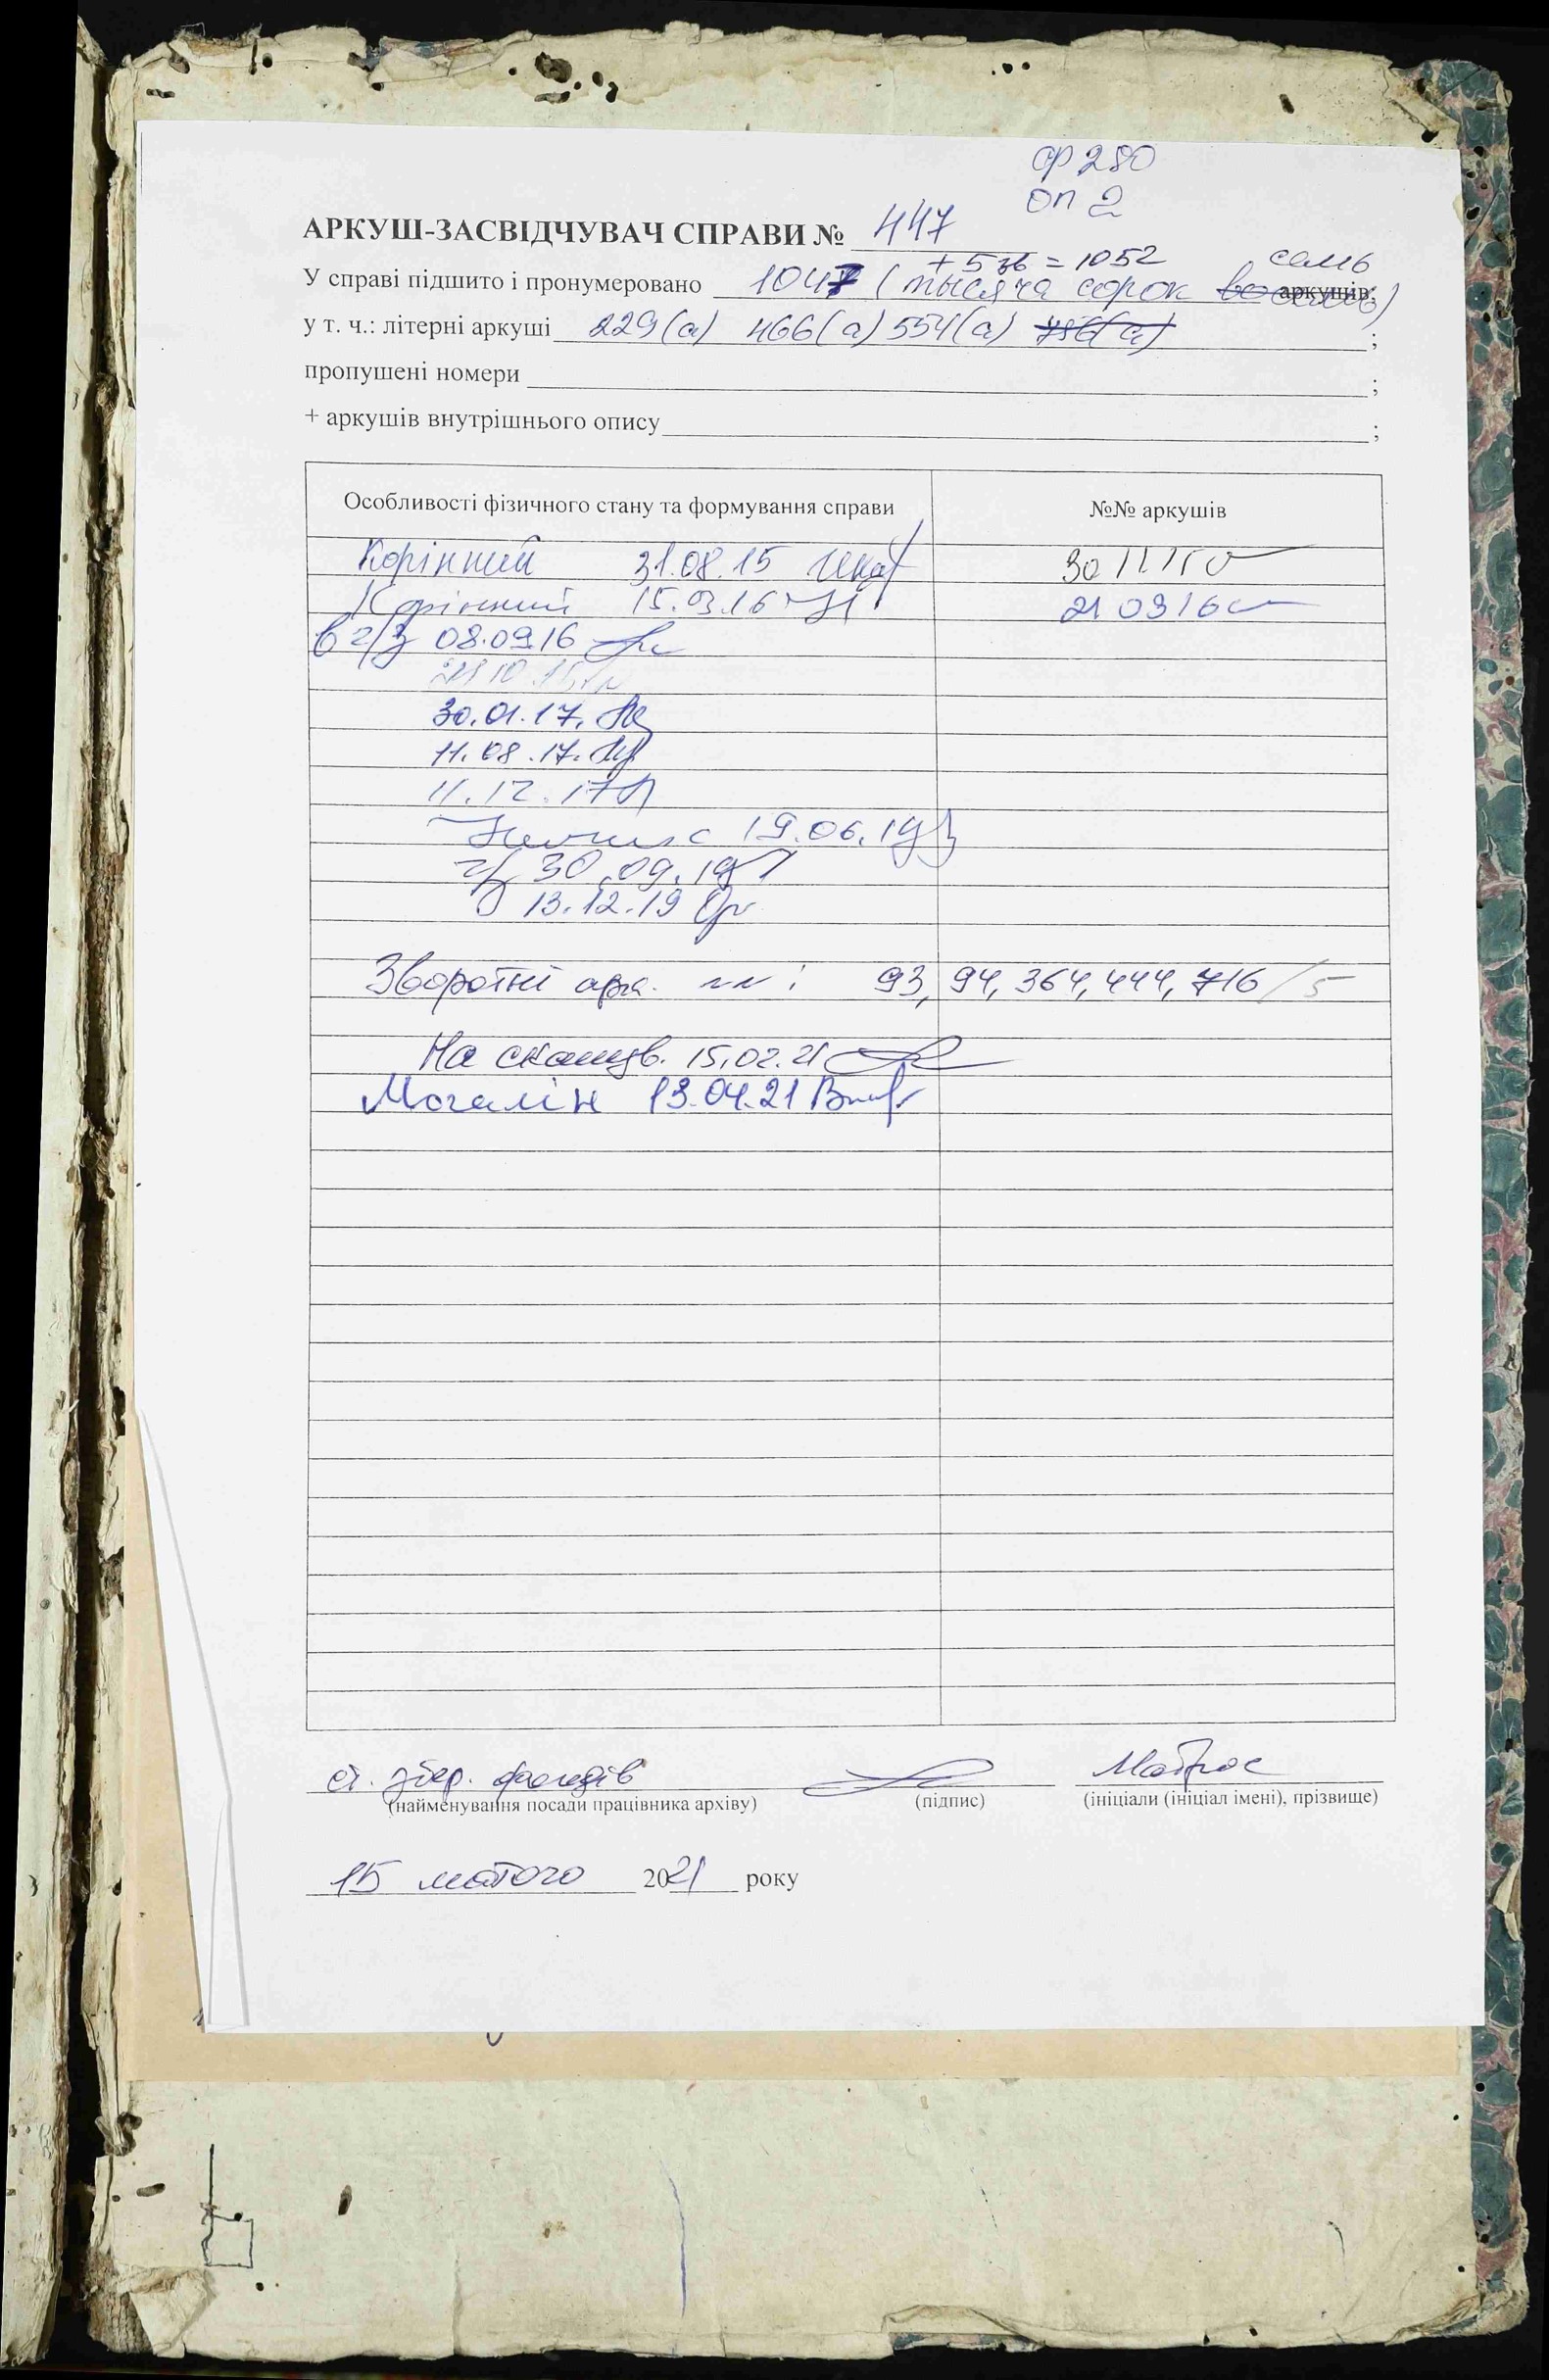 ф 280
оп 2
АРКУШ-ЗАСВІДЧУВАЧ СПРАВИ № 447
+ 5 зв = 1052 семь
У справі підшито і пронумеровано 1047 (тысяча сорок восемь) аркушів;
у т. ч.: літерні аркуші 229(а) 466(а) 554(а) 786(а) ;
пропущені номери ;
+ аркушів внутрішнього опису ;
Особливості фізичного стану та формування справи №№ аркушів
Корінний 31.08.15 30 11 15
Корінний 15.03.16 21 03 16
в ч/з 08.09.16
30.01.17.
11.08.17.
11.12.17
19.06.19
30.09.19
13.12.19
Зворотні арк. : 93, 94, 364, 444, 716 / 5
На сканув. 15.02.21
Могалін 13.04.21
ст. збер. фондів Матрос
(найменування посади працівника архіву) (підпис) (ініціали (ініціал імені), прізвище)
15 лютого 2021 року